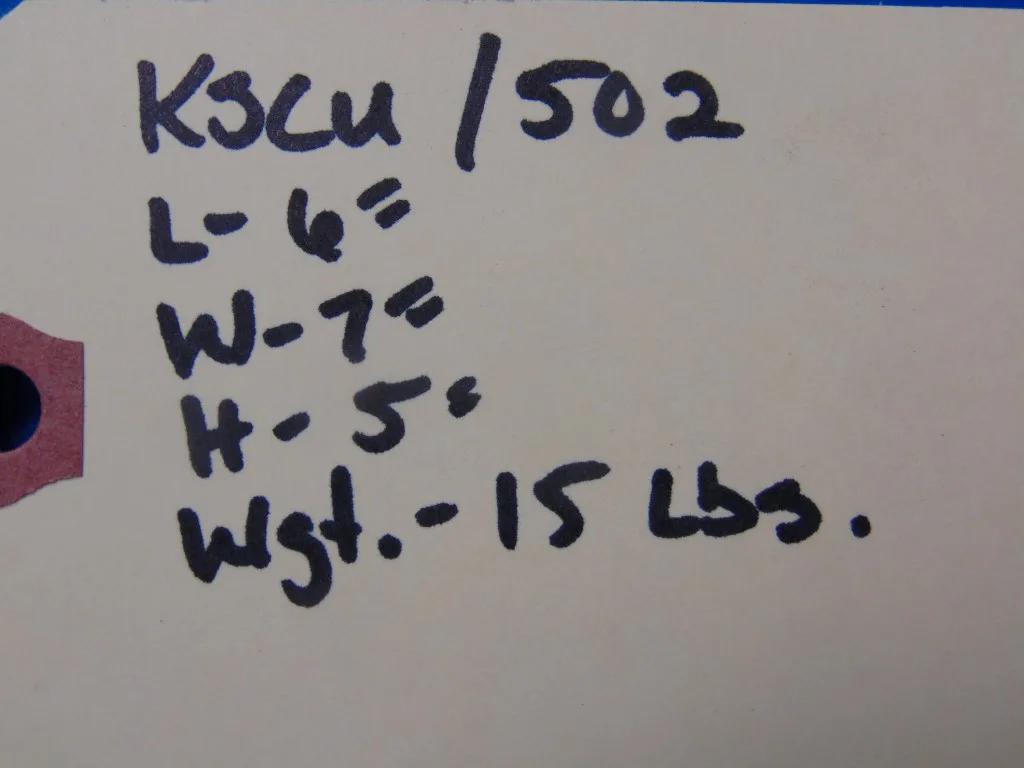 KSCU /502
L- 6"
W- 7"
H- 5"
Wgt.- 15 Lbs.